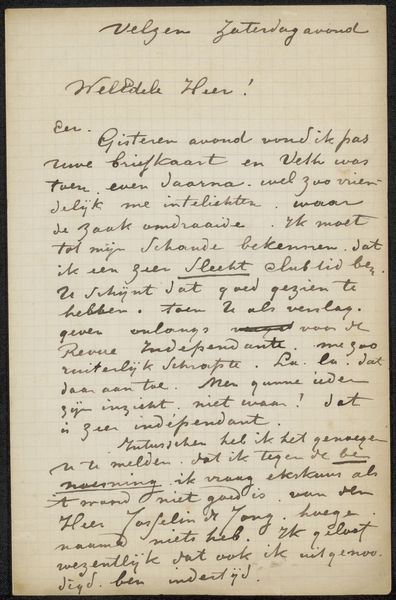 Velzen Zaterdagavond
WelEdele Heer!
Eer.
Gisteren avond vond ik pas
uwe briefkaart en Veth was
toen. even daarna. wel zoo vrien-
delijk me intelichten. waar
de zaak omdraaide. Ik moet
tot mijn schande bekennen. dat
ik een zeer slecht clublid ben.
U schijnt dat goed gezien te
hebben. toen U als verslag.
gever onlangs voor de
Revue Indépendante. me zoo
ruiterlijk schrapte. La. la. dat
daar aan toe. Men gunne ieder
zijn inzicht. niet waar! dat
is zeer indépendant.
Intusschen heb ik het genoegen
U te melden. dat ik tegen de be
noeming ik vraag ekskuus als
't woord niet goed is. van den
Heer Josselin de Jong. hoege-
naamd niets heb. Ik geloof
wezentlijk dat ook ik uitgenoo-
digd. ben indertijd.